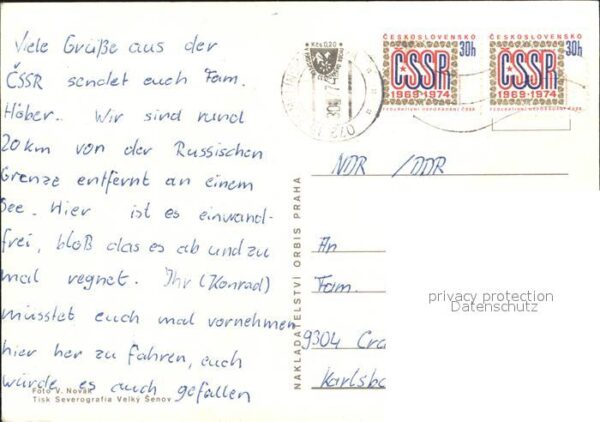 Viele Grüße aus der
ČSSR sendet euch Fam.
Häber. Wir sind rund
20 km von der Russischen
Grenze entfernt an einem
See. Hier ist es einwand-
frei, bloß das es ab und zu
mal regnet. Ihr (Konrad)
müsstet euch mal vornehmen
hier her zu fahren, euch
würde es auch gefallen
Foto V. Novák
Tisk Severografia Velký Šenov
NAKLADATELSTVÍ ORBIS PRAHA
Kčs 0,20
ČESKOSLOVENSKO
30h
ČSSR
1969-1974
FEDERATIVNÍ USPOŘÁDÁNÍ ČSSR
ČESKOSLOVENSKO
30h
ČSSR
1969-1974
FEDERATIVNÍ USPOŘÁDÁNÍ ČSSR
NDR / DDR
An
Fam.
9304 Cra
Karlsba
privacy protection
Datenschutz